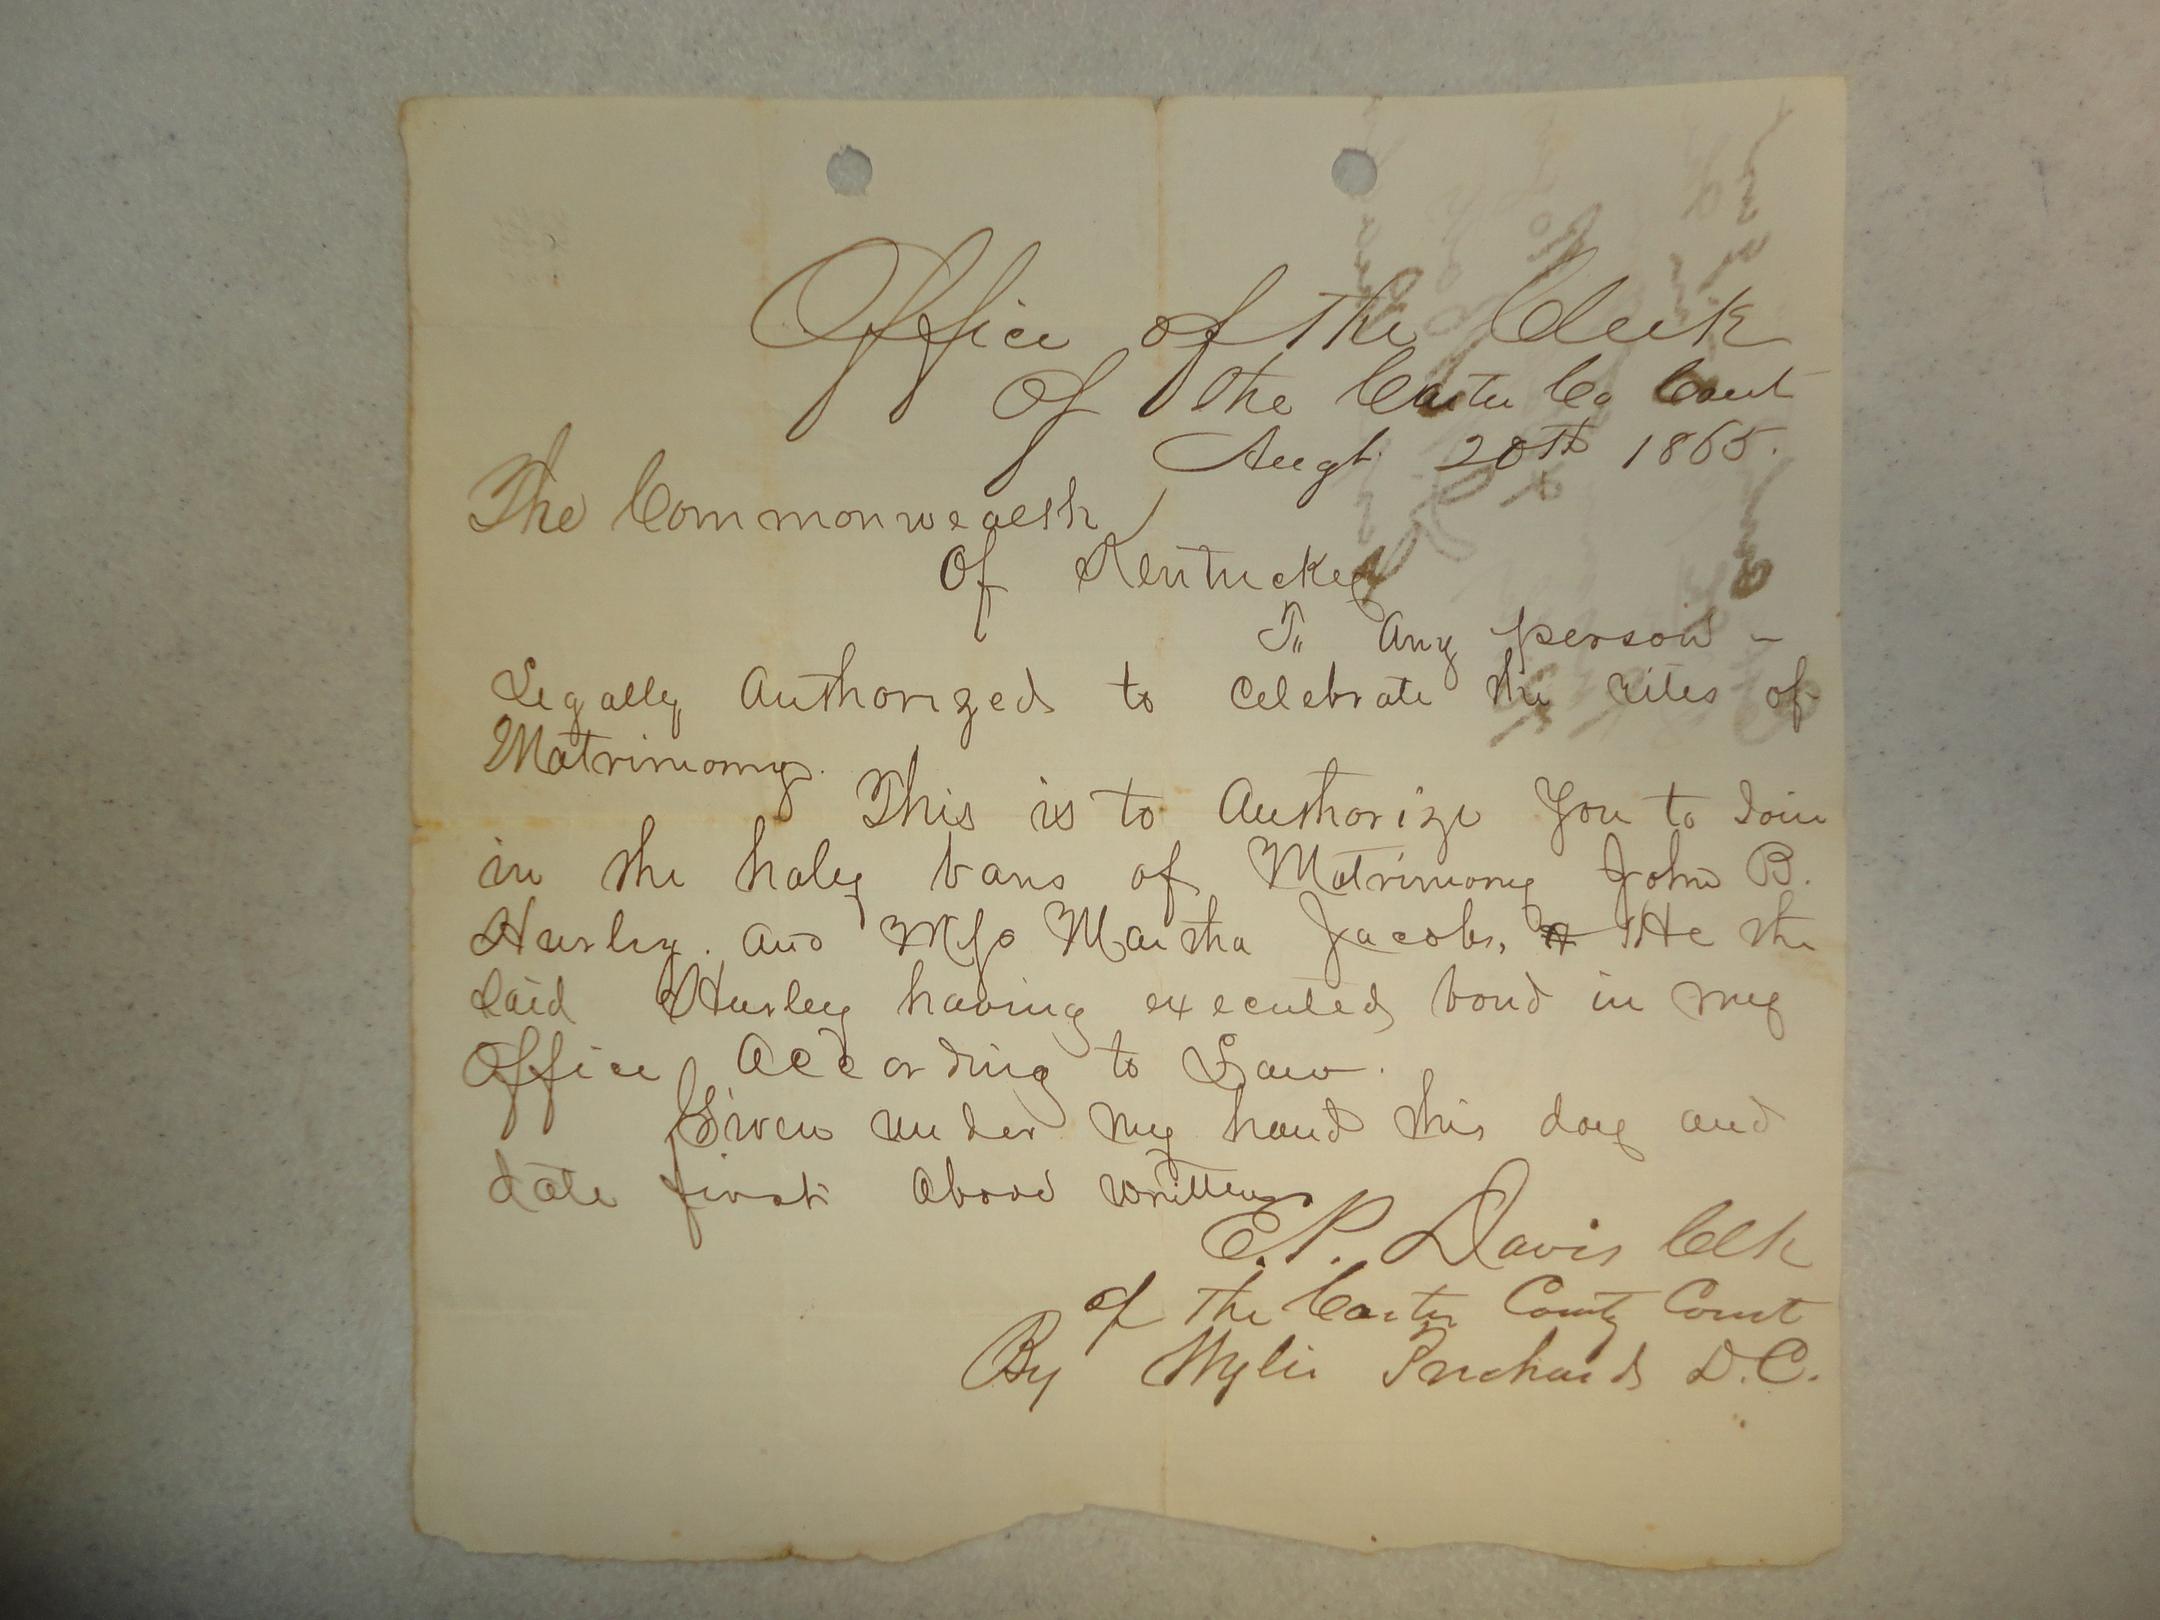 Office of the Clerk
Of The Carter Co Court
Augt. 20th 1865.
The Commonwealth
Of Kentuckey
To Any person -
Legally Authorized to Celebrate the rites of
Matrimony.
This is to Authorize You to Join
in the holy bans of Matrimony John B.
Hurley. and Martha Jacobs, He the
Said Hurley having executed bond in my
Office According to Law.
Given under my hand this day and
date first above written
E.P. Davis Clk
of The Carter County Court
By Wylie Prichard D.C.